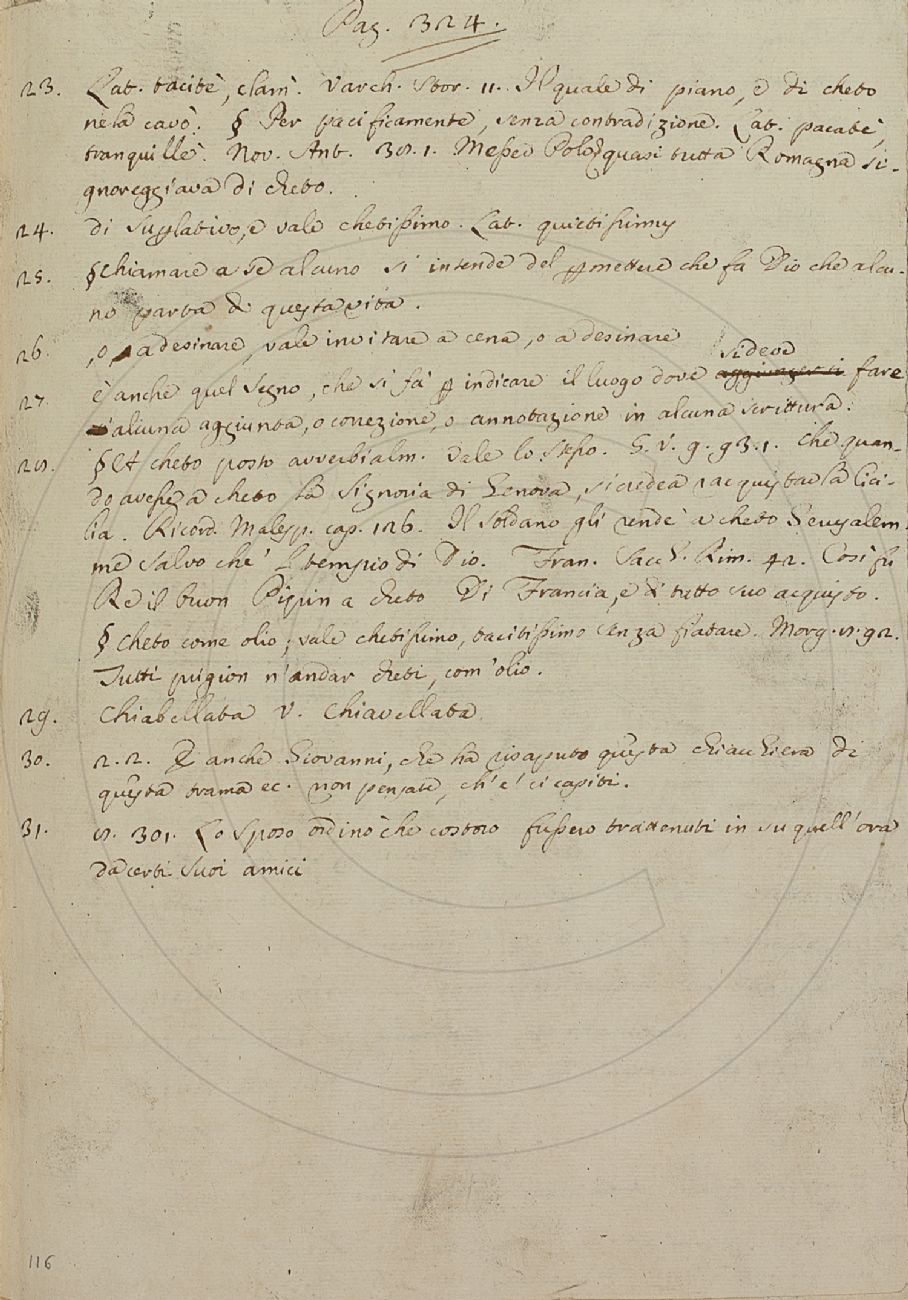 Pag. 324.
23. Lat. tacitè, clam. Varch. Stor. 11. Il quale di piano, e di cheto
nela cavò. § Per pacificamente, senza contradizione. Lat. pacatè,
tranquillè. Nov. Ant. 38. 1. Messer Polo quasi tutta Romagna si-
gnoreggiava di cheto.
24. di suplativo, e vale chetissimo. Lat. quietissimus
25. § Chiamare a se alcuno si intende del pmettere che fa Dio che alcu-
no parta di questa vita.
26. , o a desinare, vale invitare a cena, o a desinare
27. è anche quel segno, che si fà p indicare il luogo dove si deve fare
alcuna aggiunta, o correzione, o annotazione in alcuna scrittura.
28. § A cheto posto avverbialm. vale lo stesso. G. V. 9. 93. 1. Che quan-
do avesse a cheto la Signoria di Genova, si credea racquistar la Cici-
lia. Ricord. Malesp. cap. 126. Il soldano gli rendè a cheto Gerusalem-
me salvo che 'l tempio di Dio. Fran. Sacch. Rim. 42. Così fu
Re il buon Pipin a cheto Di Francia, e di tutto suo acquisto.
§ Cheto come olio; vale chetissimo, tacitissimo senza fiatare. Morg. 18. 92.
Tutti prigion n'andar cheti, com'olio.
29. Chiabellata V. Chiavellata
30. 2. 2. E anche Giovanni, che ha risaputo questa chiacchiera di
questa trama ec. non pensate, ch'e' ci capiti.
31. 8. 301. Lo sposo ordinò che costoro fussero trattenuti in su quell'ora
da certi suoi amici
116